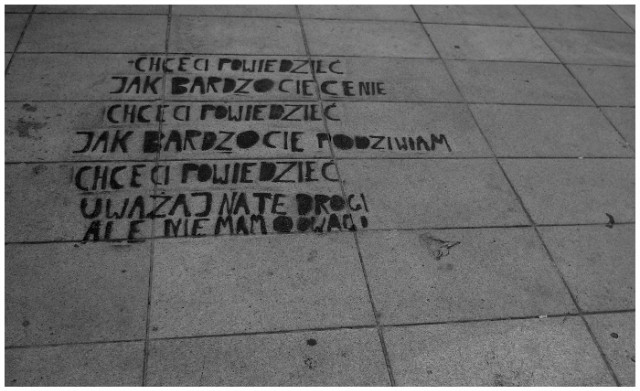 CHCE CI POWIEDZIEC
JAK BARDZO CIE CENIE
CHCE CI POWIEDZIEC
JAK BARDZO CIE PODZIWIAM
CHCE CI POWIEDZIEC
UWAŻAJ NA TE DROGI
ALE NIE MAM ODWAGI